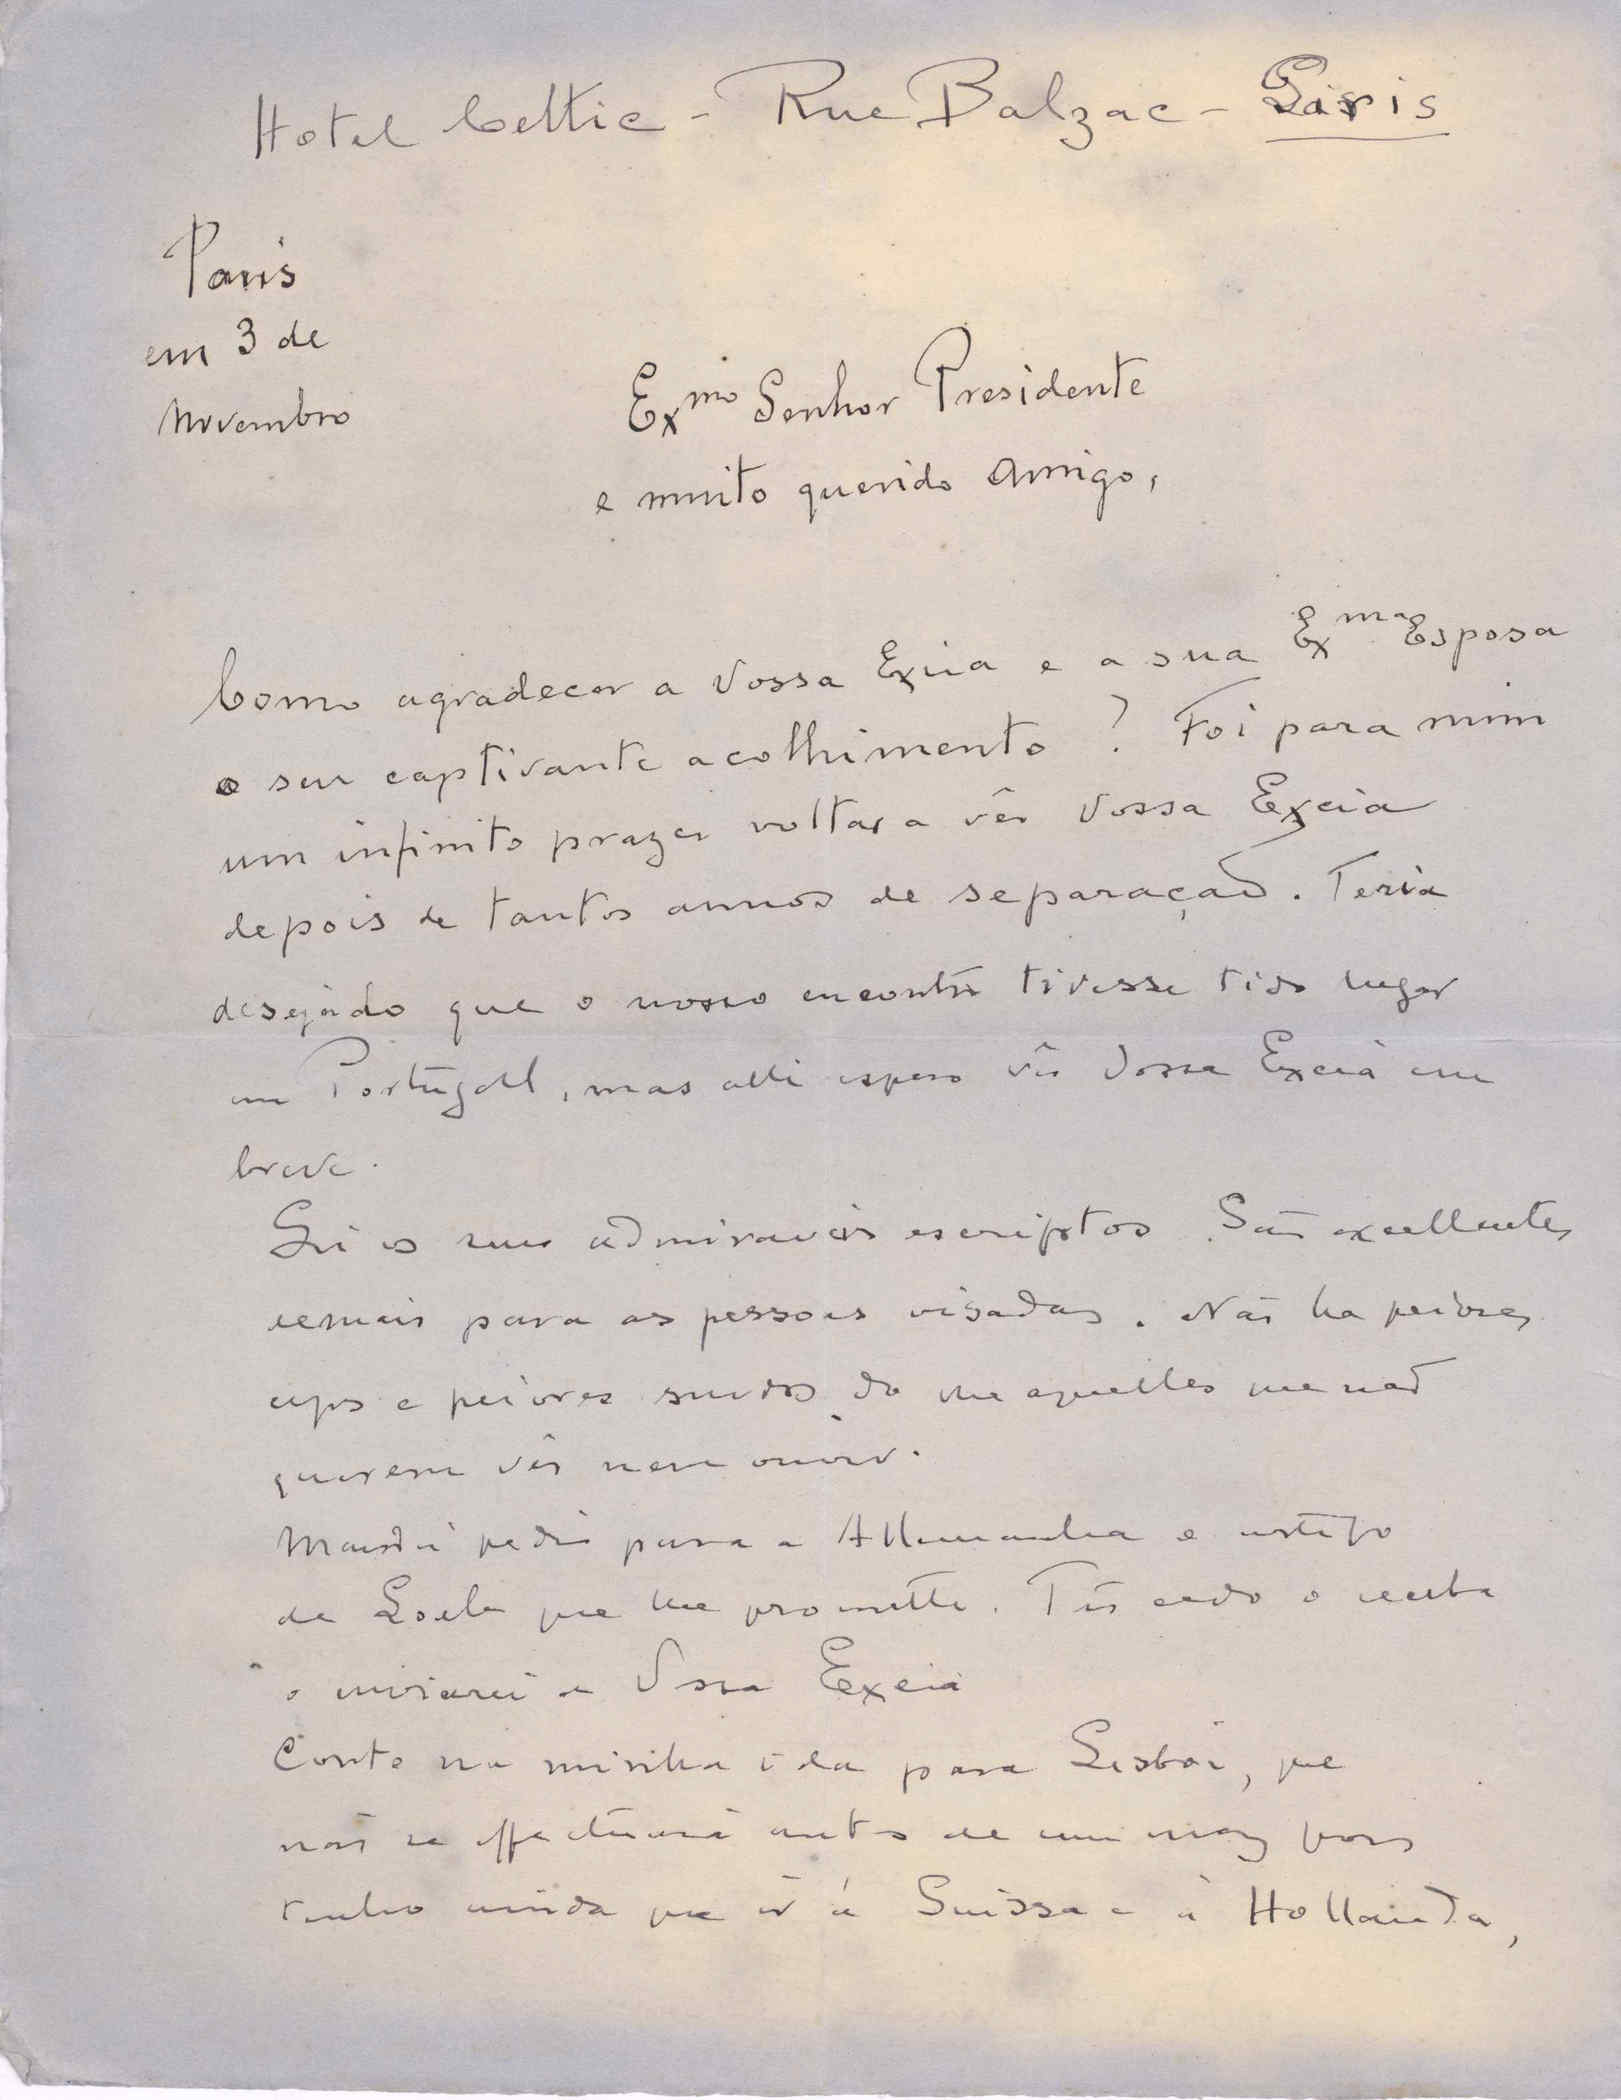 Hotel Celtic - Rue Balzac - Paris
Paris
em 3 de
Novembro
Exmo Senhor Presidente
e muito querido amigo,
Como agradecer a Vossa Excia e a sua Exma Esposa
o seu captivante acolhimento? Foi para mim
um infinito prazer voltar a vêr Vossa Excia
depois de tantos annos de separação. Teria
desejado que o nosso encontro tivesse tido lugar
em Portugal, mas alli espero vêr Vossa Excia em
breve.
Li os seus admiraveis escriptos. São excellentes
demais para as pessoas visadas. Não ha peiores
cegos e peiores surdos do que aquelles que não
querem vêr nem ouvir.
Mandei pedir para a Allemanha o artigo
de que lhe prometti. Tão cedo o receba
o enviarei a Vossa Excia
Conto na minha ida para Lisboa, que
não se effectuará antes de um mez pois
tenho ainda que ir á Suissa e à Hollanda,